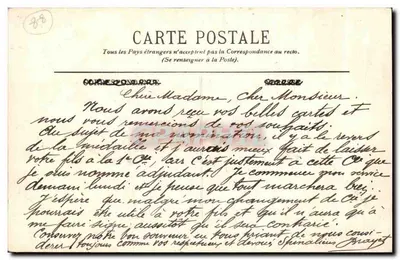 88
CARTE POSTALE
Tous les Pays étrangers n'acceptent pas la Correspondance au recto.
(Se renseigner à la Poste).
Chère Madame, Cher Monsieur.
Nous avons reçu vos belles cartes et
nous vous remercions de vos souhaits.
Au sujet de ma nomination, il y a le revers
de la médaille et j'aurais mieux fait de laisser
votre fils à la 1re Cie, car c'est justement à cette Cie que
je suis nommé adjudant. Je commence mon service
demain lundi et je pense que tout marchera bien.
J'espère que malgré mon changement de Cie je
pourrais être utile à votre fils et qu'il n'aura qu'à
me faire signe, aussitôt qu'il sera contrarié.
Conservez notre bon souvenir en vous priant de nous consi-
dérer toujours comme vos respectueux et dévoués Spinaliens